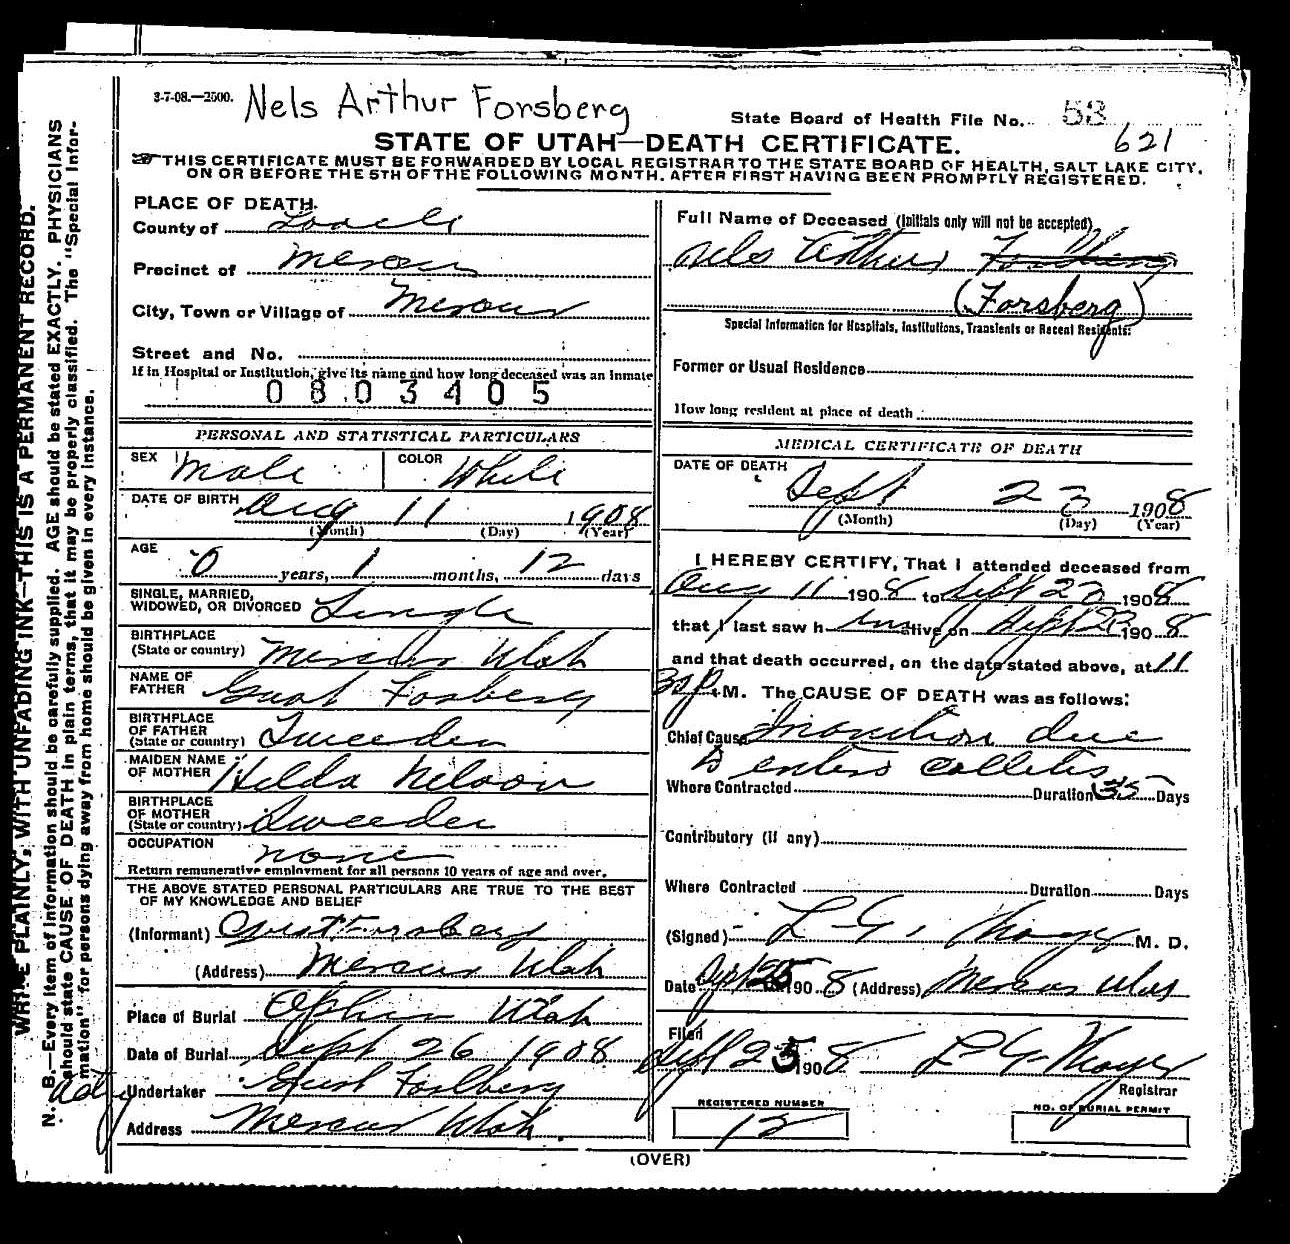 3-7-08.—2500. Nels Arthur Forsberg
State Board of Health File No. 53
621
STATE OF UTAH—DEATH CERTIFICATE.
THIS CERTIFICATE MUST BE FORWARDED BY LOCAL REGISTRAR TO THE STATE BOARD OF HEALTH, SALT LAKE CITY,
ON OR BEFORE THE 5TH OF THE FOLLOWING MONTH. AFTER FIRST HAVING BEEN PROMPTLY REGISTERED.
WRITE PLAINLY, WITH UNFADING INK—THIS IS A PERMANENT RECORD.
N. B.—Every item of information should be carefully supplied. AGE should be stated EXACTLY. PHYSICIANS
should state CAUSE OF DEATH in plain terms, that it may be properly classified. The "Special Infor-
mation" for persons dying away from home should be given in every instance.
PLACE OF DEATH.
County of
Precinct of Mercur
City, Town or Village of Mercur
Street and No.
If in Hospital or Institution, give its name and how long deceased was an Inmate
0803405
PERSONAL AND STATISTICAL PARTICULARS
SEX Male COLOR White
DATE OF BIRTH Aug 11 1908
(Month) (Day) (Year)
AGE
0 years, 1 months, 12 days
SINGLE, MARRIED,
WIDOWED, OR DIVORCED Single
BIRTHPLACE
(State or country) Mercur Utah
NAME OF
FATHER Gust Forsberg
BIRTHPLACE
OF FATHER
(State or country) Sweeden
MAIDEN NAME
OF MOTHER Hilda Nelson
BIRTHPLACE
OF MOTHER
(State or country) Sweeden
OCCUPATION none
Return remunerative employment for all persons 10 years of age and over.
THE ABOVE STATED PERSONAL PARTICULARS ARE TRUE TO THE BEST
OF MY KNOWLEDGE AND BELIEF
(Informant) Gust Forsberg
(Address) Mercur Utah
Place of Burial Ophir Utah
Date of Burial Sept 26 1908
Undertaker Gust Forsberg
Address Mercur Utah
Full Name of Deceased (Initials only will not be accepted)
Nels Arthur
(Forsberg)
Special Information for Hospitals, Institutions, Transients or Recent Residents:
Former or Usual Residence
How long resident at place of death
MEDICAL CERTIFICATE OF DEATH
DATE OF DEATH
Sept 23 1908
(Month) (Day) (Year)
I HEREBY CERTIFY, That I attended deceased from
Aug 11 1908 to Sept 23 1908
that I last saw him alive on Sept 23 1908
and that death occurred, on the date stated above, at 11
30 P.M. The CAUSE OF DEATH was as follows:
Chief Cause Inanition due
to entero collitis
Where Contracted Duration 35 Days
Contributory (if any)
Where Contracted Duration Days
(Signed) L. G. M. D.
Date Sept 25 1908 (Address) Mercur Utah
Filed
Sept 25 1908 L. G.
Registrar
REGISTERED NUMBER
12
NO. OF BURIAL PERMIT
(OVER)